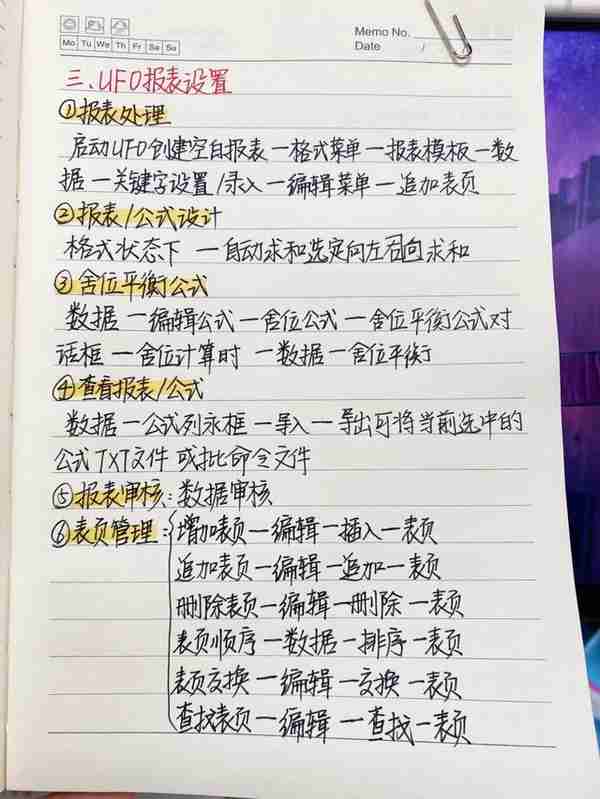 Memo No.
Mo Tu We Th Fr Sa Su
Date /
三.UFO报表设置
①报表处理
启动UFO创建空白报表一格式菜单一报表模板一数
据一关键字设置/录入一编辑菜单一追加表页
②报表/公式设计
格式状态下一自动求和选定向左右向求和
③舍位平衡公式
数据一编辑公式一舍位公式一舍位平衡公式对
话框一舍位计算时一数据一舍位平衡
④查看报表/公式
数据一公式列永框一导入一导出可将当前选中的
公式TXT文件或批命令文件
⑤报表审核:数据审核
⑥表页管理:增加表页一编辑一插入一表页
追加表页一编辑一追加一表页
删除表页一编辑一删除一表页
表页顺序一数据一排序一表页
表页交换一编辑一交换一表页
查找表页一编辑一查找一表页